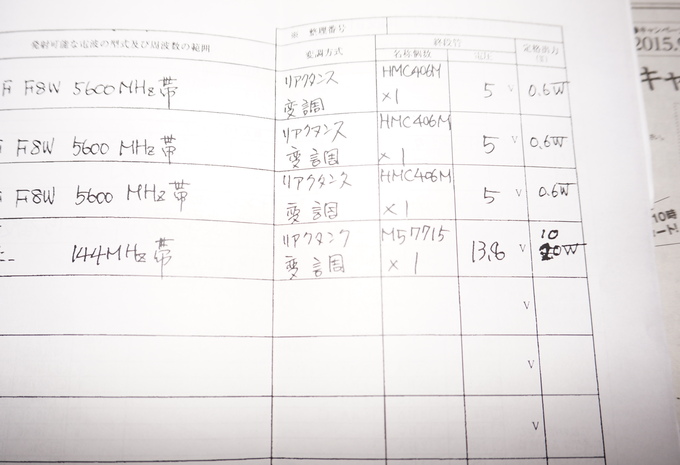 ※ 整理番号
発射可能な電波の型式及び周波数の範囲
変調方式
終段管
名称個数
電圧
定格出力
(W)
F8W 5600MHz帯
リアクタンス
変調
HMC406M
×1
5 V
0.6W
F8W 5600 MHz帯
リアクタンス
変調
HMC406M
×1
5 V
0.6W
F8W 5600 MHz帯
リアクタンス
変調
HMC406M
×1
5 V
0.6W
144MHz帯
リアクタンク
変調
M57715
×1
13.8 V
10
W
V
V
V
2015.9
キャ
10時
ート!